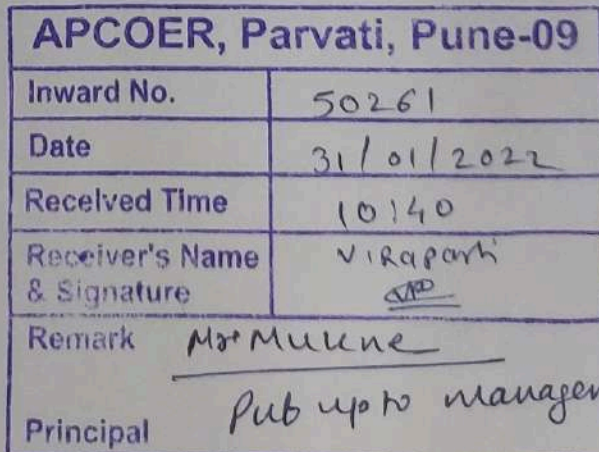 APCOER, Parvati, Pune-09
Inward No. 50261
Date 31/01/2022
Received Time 10:40
Receiver's Name
& Signature
Remark Mr Mukne
Principal Put up to manage